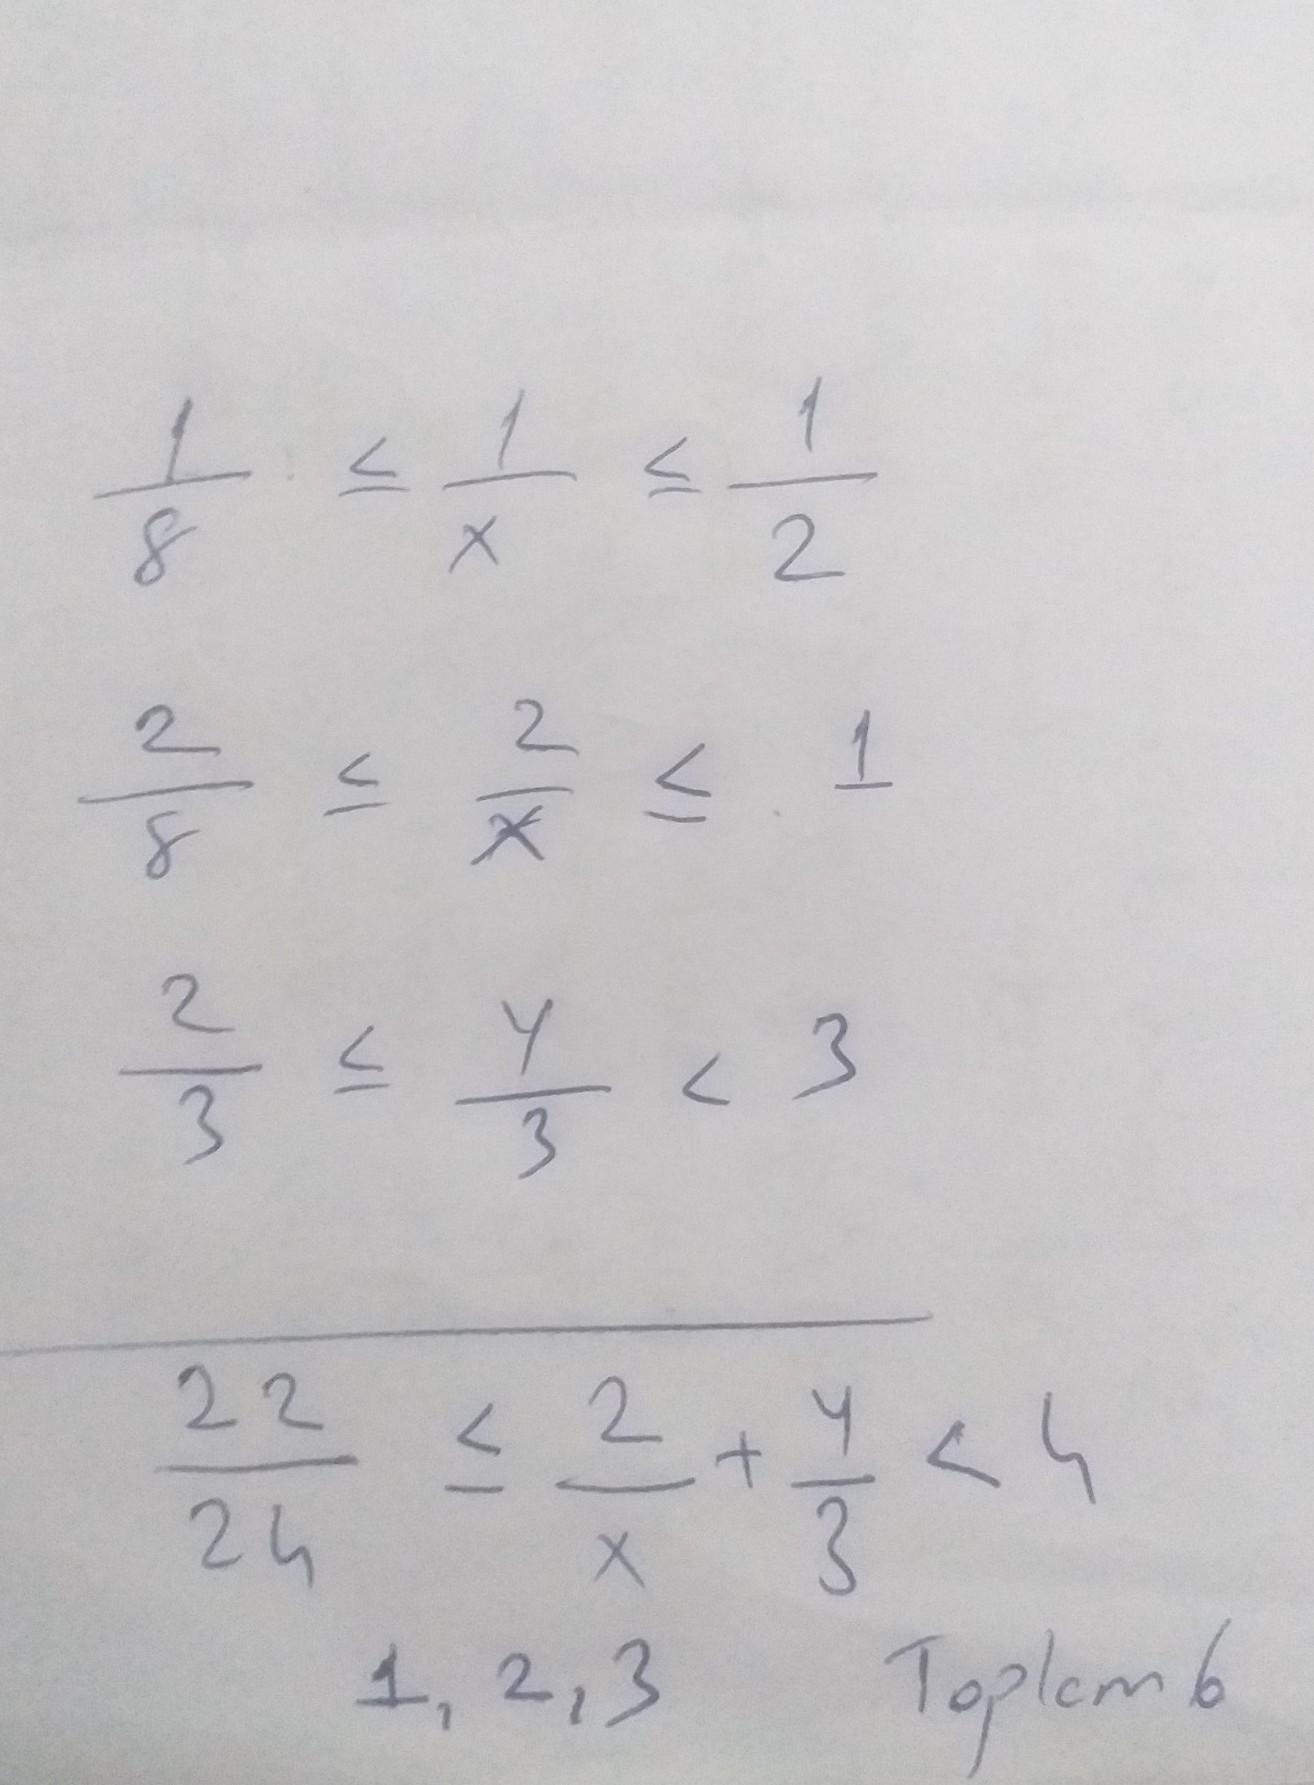 1/8 ≤ 1/x ≤ 1/2
2/8 ≤ 2/x ≤ 1
2/3 ≤ y/3 < 3
22/24 ≤ 2/x + y/3 < 4
1, 2, 3 Toplam 6